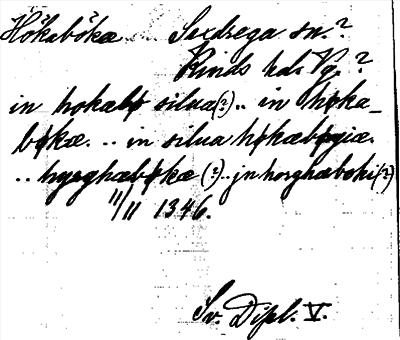 Hökabökæ ... Saxdrega sn.?
Kinds hd. Vg.?
in hokabø silua(?).. in høka-
bøkæ. .. in silua høkabøgiæ.
.. hyrghæbøkæ (?).. jn horghæbøki(?)
11/11 1346.
Sv. Dipl. V.